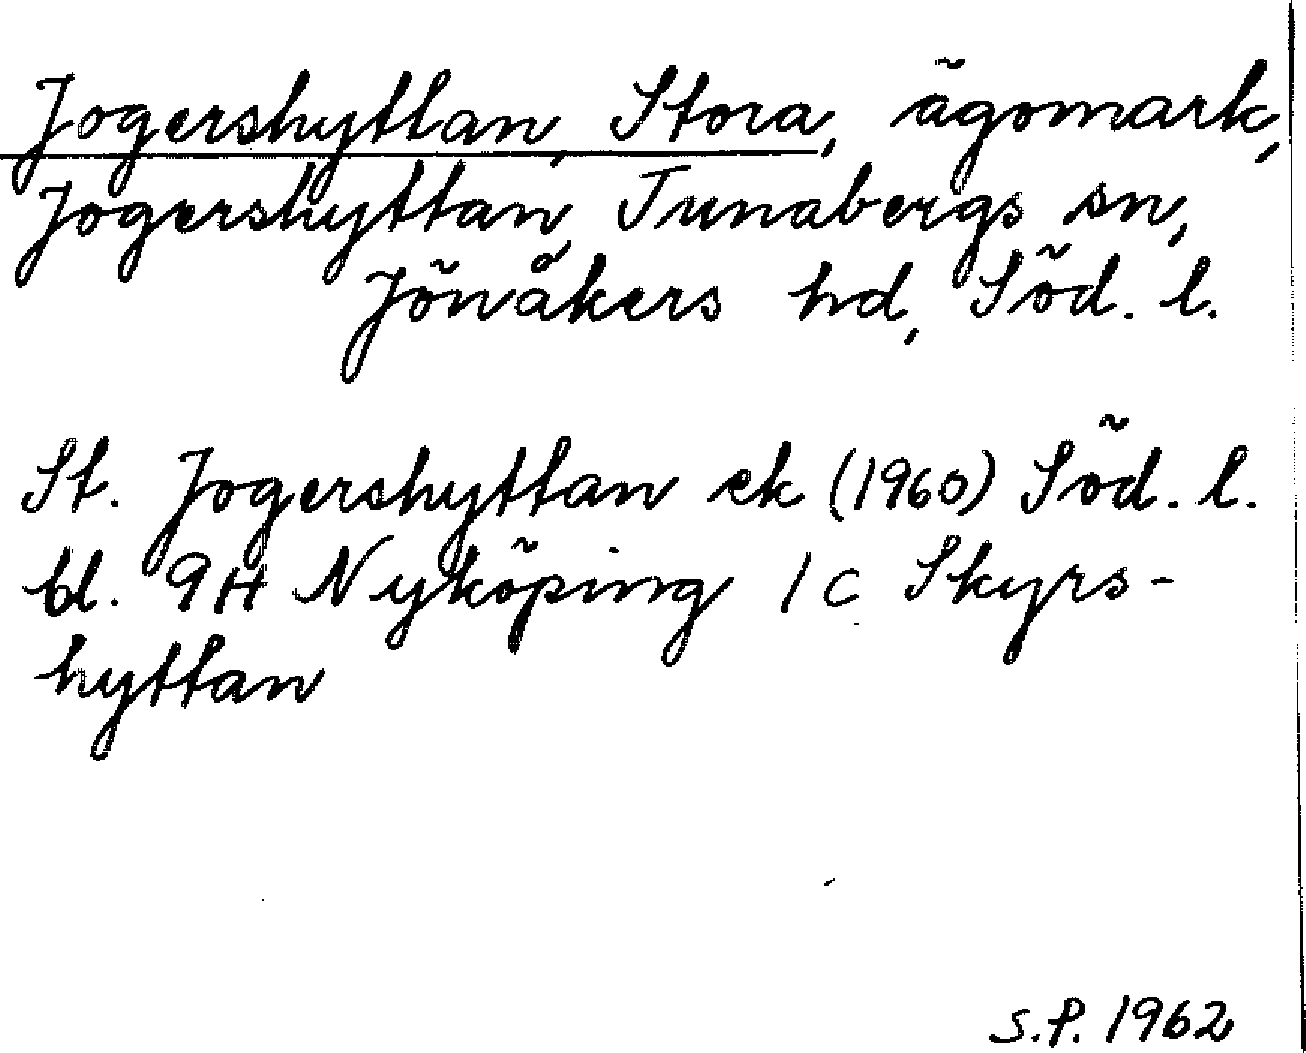 Jogershyttan, Stora, ägomark,
Jogershyttan, Tunabergs sn,
Jönåkers hd, Söd. l.
St. Jogershyttan ek (1960) Söd. l.
bl. 9H Nyköping 1 c Skyrs-
hyttan
S.P. 1962